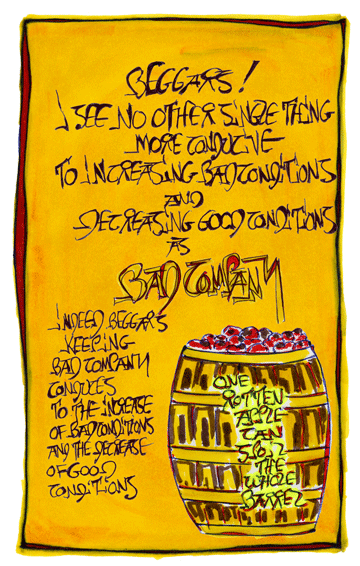 BEGGARS!
I SEE NO OTHER SINGLE THING
MORE CONDUCIVE
TO INCREASING BAD CONDITIONS
AND
DECREASING GOOD CONDITIONS
AS
BAD COMPANY
INDEED BEGGARS
KEEPING
BAD COMPANY
CONDUCES
TO THE INCREASE
OF BAD CONDITIONS
AND THE DECREASE
OF GOOD
CONDITIONS
ONE
ROTTEN
APPLE
CAN
SPOIL
THE
WHOLE
BARREL